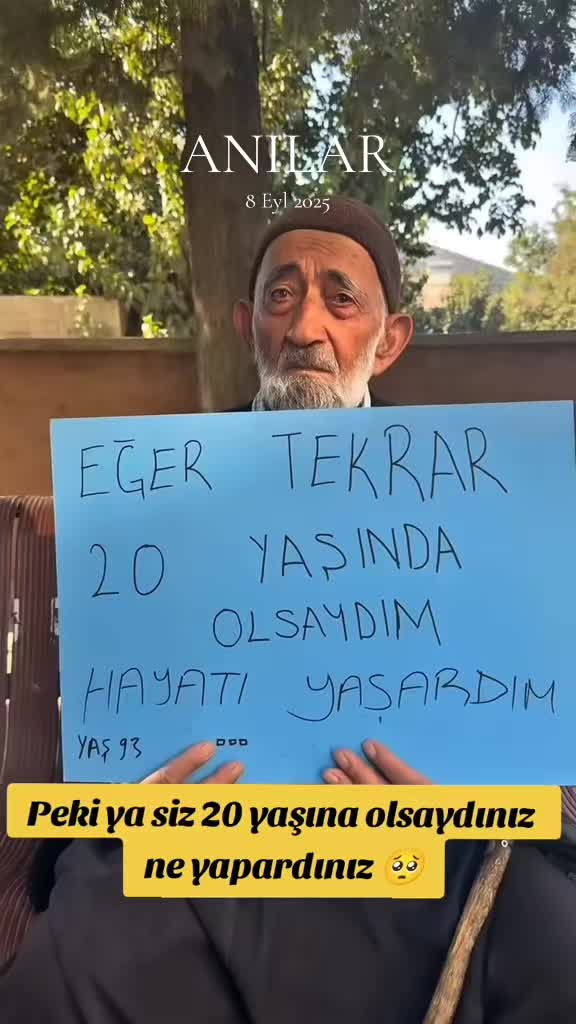 ANILAR
8 Eyl 2025
EĞER TEKRAR
20 YAŞINDA
OLSAYDIM
HAYATI YAŞARDIM
YAŞ 93
Peki ya siz 20 yaşına olsaydınız
ne yapardınız 🥺